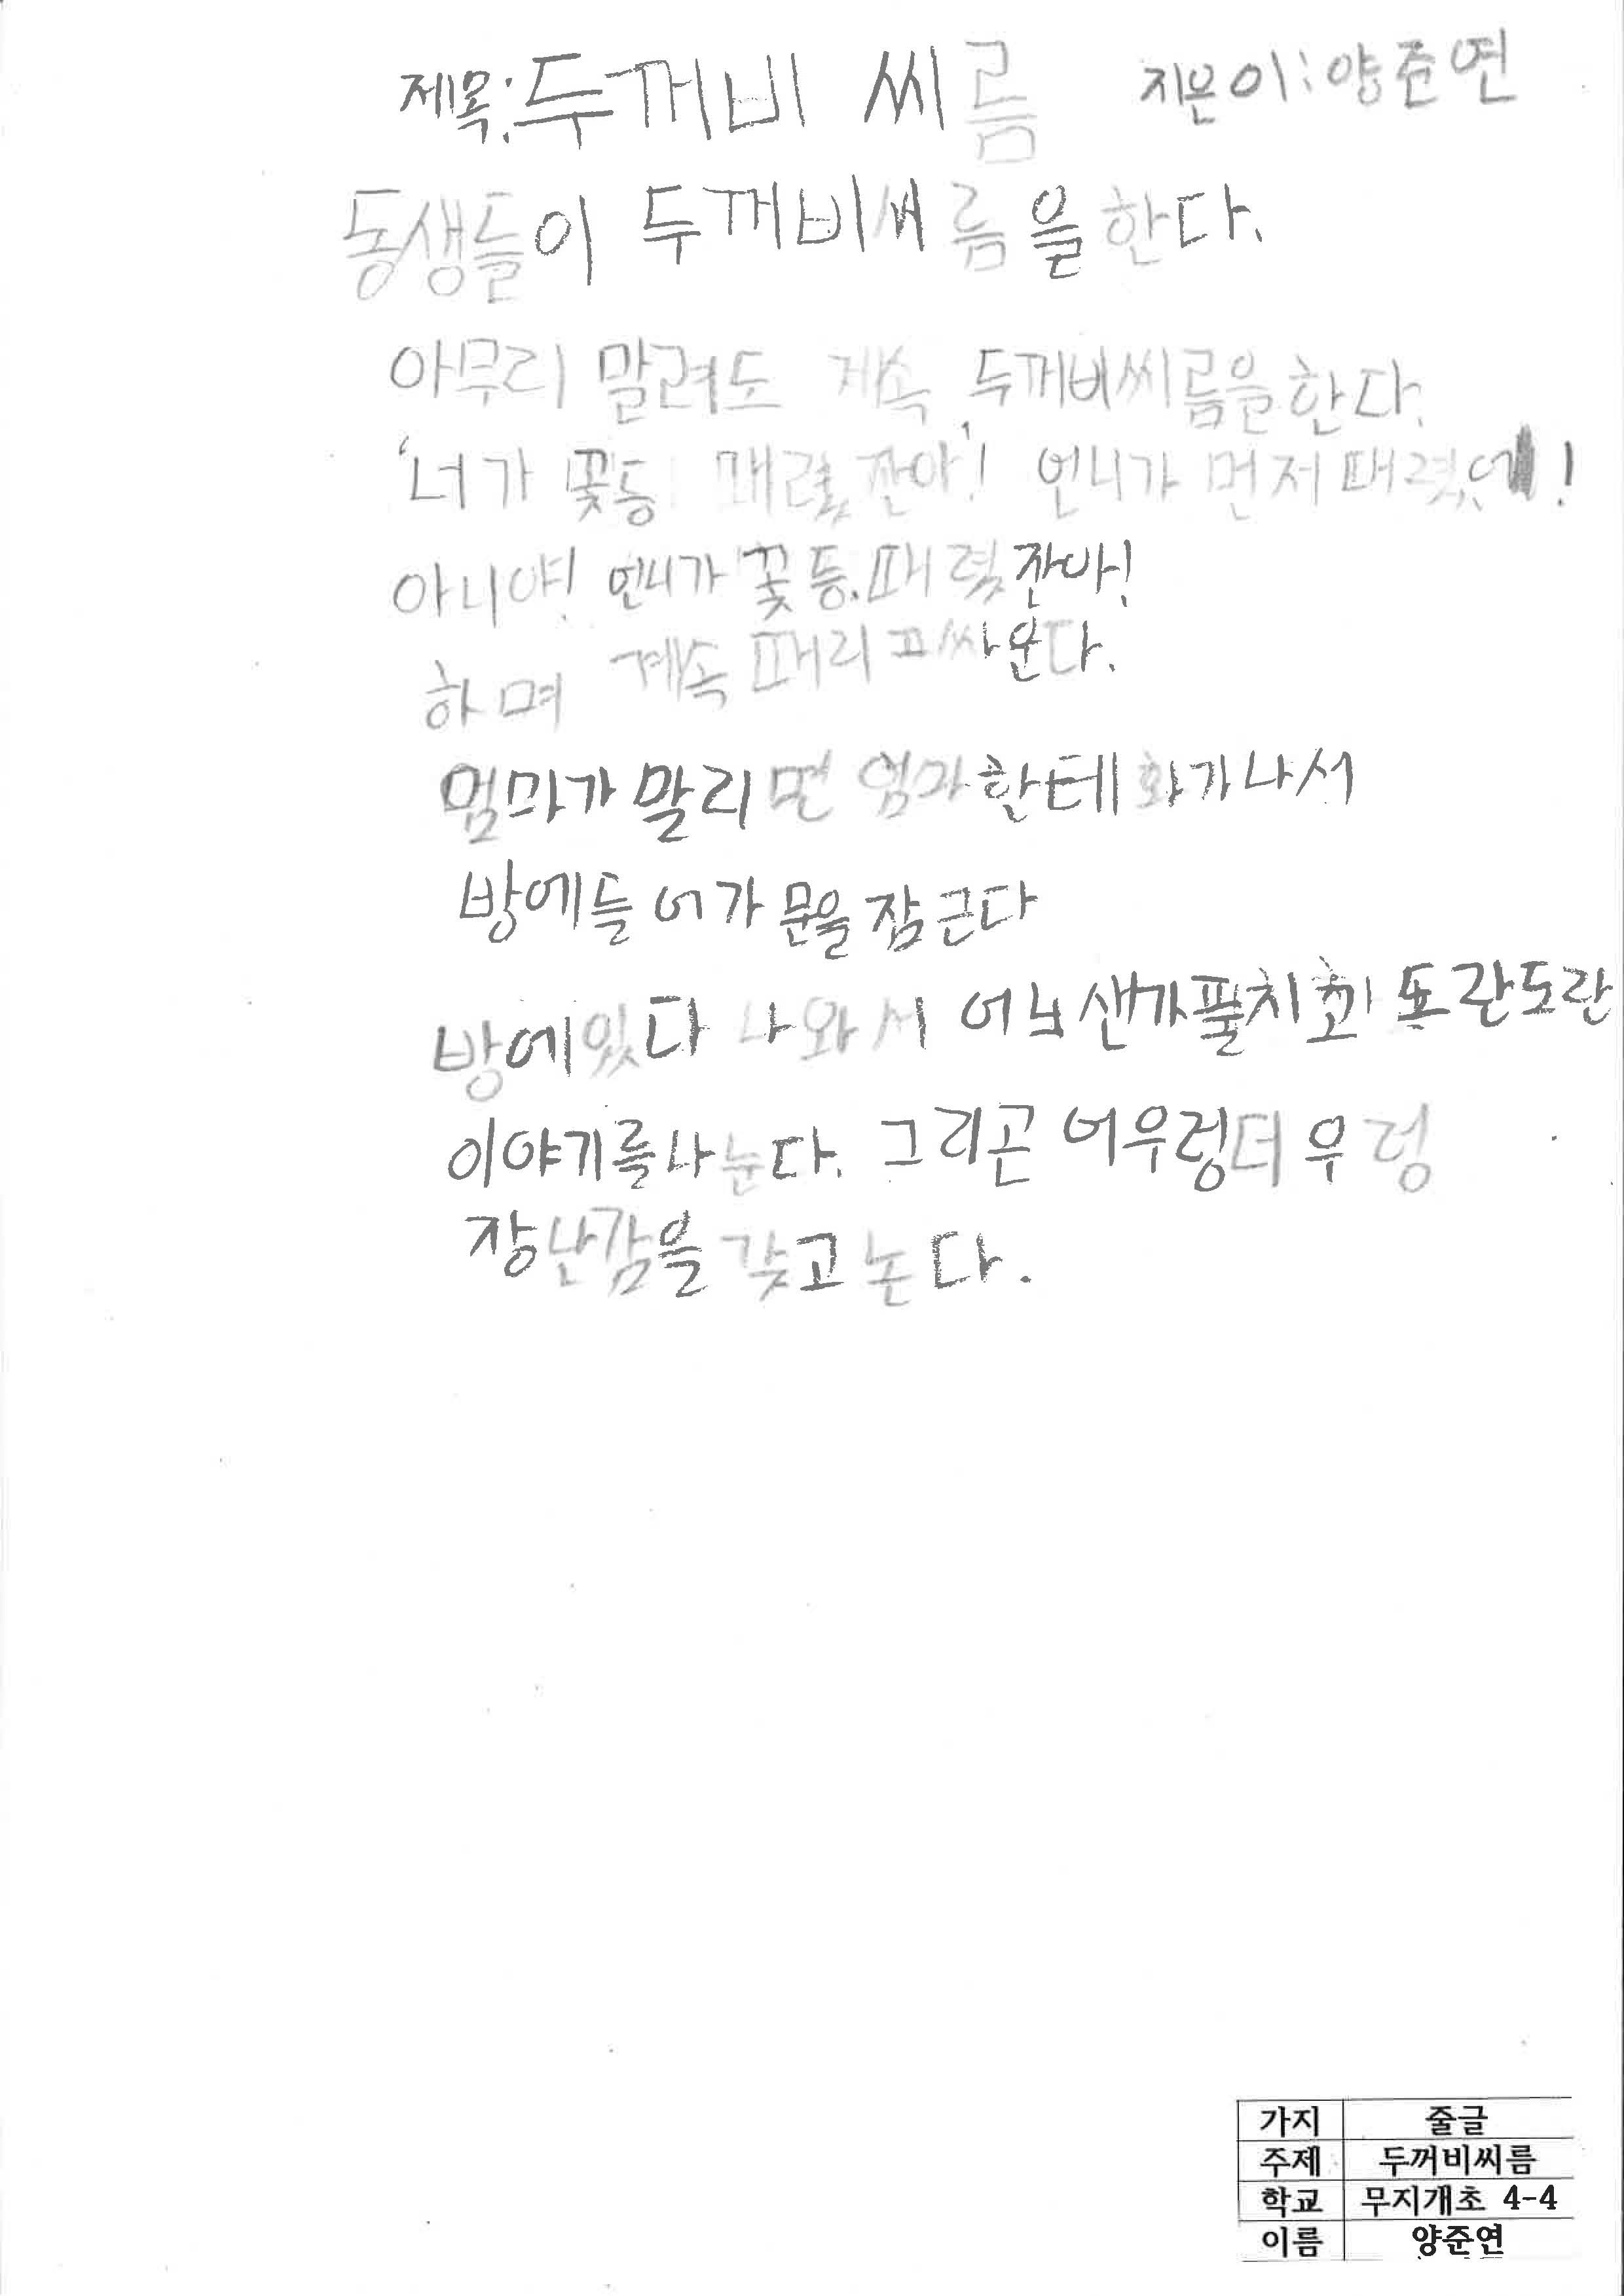 제목:두꺼비 씨름 지은이:양준연
동생들이 두꺼비씨름을한다.
아무리 말려도 계속 두꺼비씨름을한다.
'너가 꽃등 때렸잖아'! 언니가 먼저때렸어!
아니야! 언니가 꽃등.때렸잔아!
하며 계속 때리고싸운다.
엄마가말리면 엄마한테화가나서
방에들어가문을잠근다
방에있다 나와서 어느샌가풀치고 도란도란
이야기를나눈다. 그리곤 어우렁더우렁
장난감을 갖고논다.
가지 줄글
주제 두꺼비씨름
학교 무지개초 4-4
이름 양준연